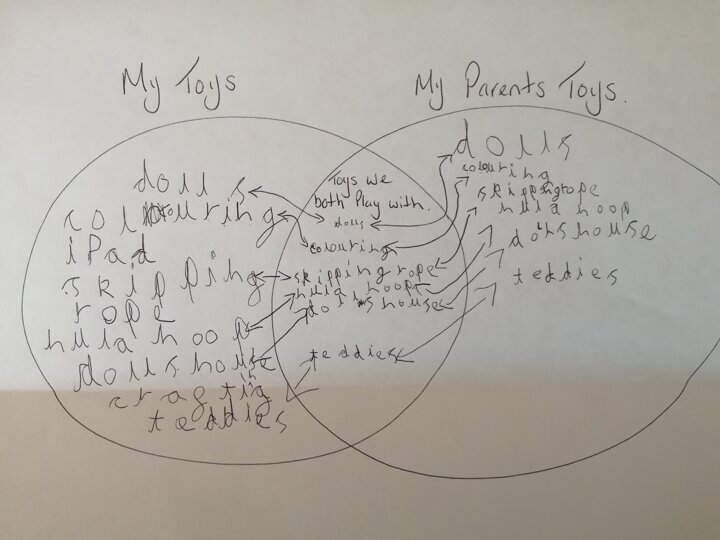 My Toys
dolls
colouring
iPad
skipping
rope
hula hoop
dollshouse
teddies
Toys we
both Play with.
dolls
colouring
skipping rope
hula hoop
dolls house
teddies
My Parents Toys.
dolls
colouring
skipping rope
hula hoop
dolls house
teddies